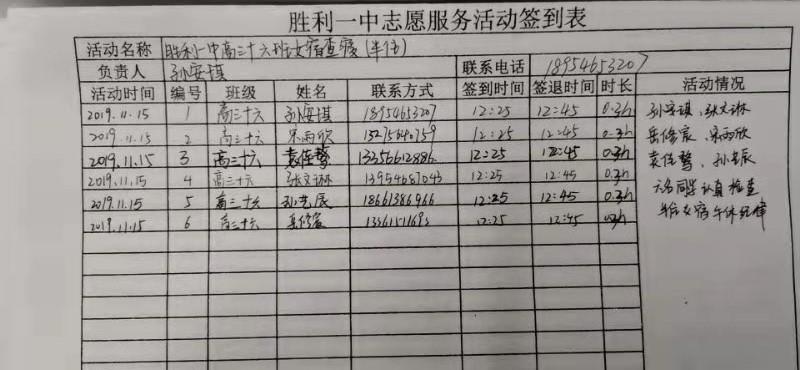 胜利一中志愿服务活动签到表
活动名称 胜利一中高三十六班女宿查寝(午休)
负责人 孙安琪 联系电话 18954653207
活动时间 编号 班级 姓名 联系方式 签到时间 签退时间 时长 活动情况
2019.11.15 1 高三十六 孙安琪 18954653207 12:25 12:45 0.3h 孙安琪、张文琳
2019.11.15 2 高三十六 宋雨欣 12:25 12:45 0.3h 岳修宸、宋雨欣
2019.11.15 3 高三十六 袁佳慧 13256612886 12:25 12:45 0.3h 袁佳慧、孙艺辰
2019.11.15 4 高三十六 张文琳 13954687043 12:25 12:45 0.3h 六名同学认真检查
2019.11.15 5 高三十六 孙艺辰 18661386966 12:25 12:45 0.3h 女宿午休纪律
2019.11.15 6 高三十六 岳修宸 12:25 12:45 0.3h